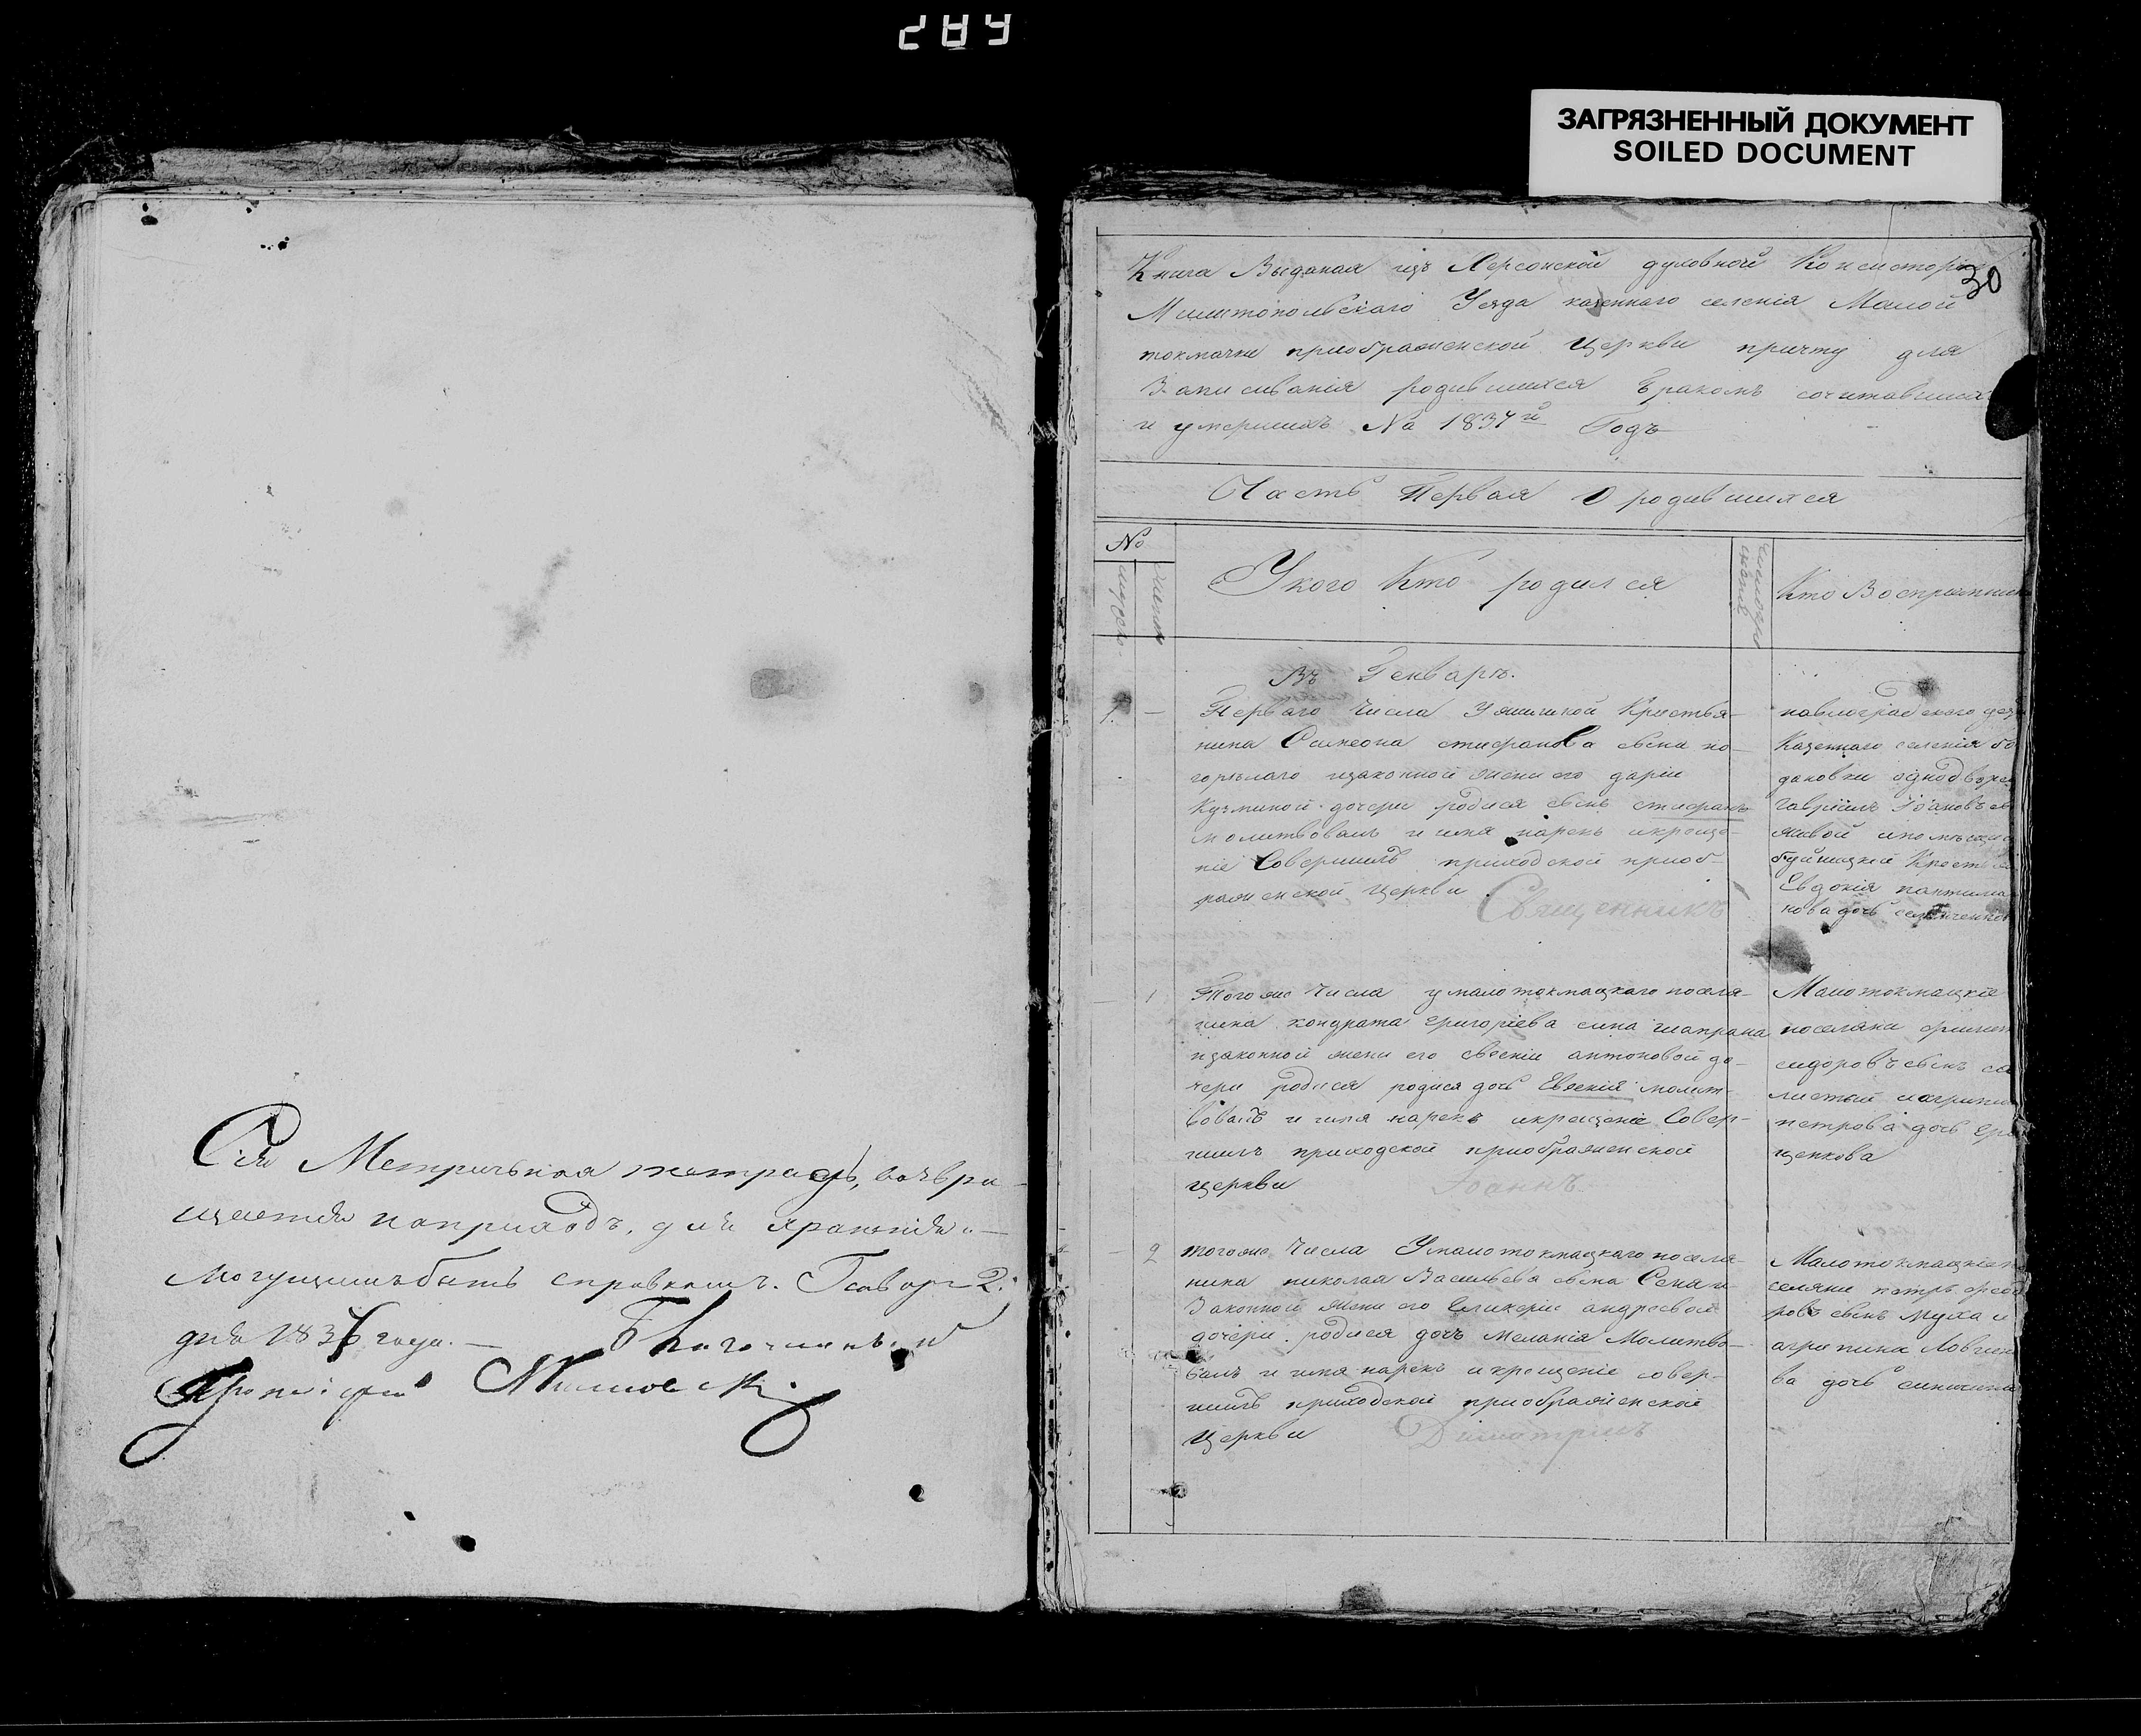 289
ЗАГРЯЗНЕННЫЙ ДОКУМЕНТ
SOILED DOCUMENT
Сія Метричьная тетрадь, возвра-
щается наприходъ, для храненія и
могущимъ быть справкамъ. Генвар 2.
дня 1837 года. — Благочинный
Протоіерей
30
Книга Выданая изъ Херсонской духовной Консисторіи
Милитопольскаго Уезда казеннаго селенія Малой
токмачки приображенской Церкви причту для
Записиванія родившихся бракомъ сочитавшихся
и умершихъ На 1837й Годъ
Часть Первая О родившихся
№
Укого Кто родился
Кто Воспріемники
мужес.
женск
Въ Генваръ.
1. — Перваго Числа Крестья-
нина Симеона стифанова сына по-
горѣлаго изаконной жени его даріи
Кузминой дочери родися сынъ стифанъ
молитвовалъ и имя нарекъ икреще-
ніе Совершилъ приходской приоб-
раженской церкви
Священникъ
павлоградского уез
Казеннаго селенія бо
дановки однодворец
гавріилъ Іоановъ сы
Евдокія пантили
нова дочь
— 1 Того же Числа умалотокмацкаго поселя-
нина кондрата григоріева сина чапрана
изаконной жени его евгеніи антоновой до-
чери родися родися дочь Евгенія молит-
вовалъ и имя нарекъ икрещеніе Совер-
шилъ приходской приображенской
церкви Іоаннъ
Малотокмацкіе
поселяни филип
сидоровъ сынъ
листый иагрипи
петрова дочь гри
щенкова
— 2 тогоже Числа Умалотокмацкаго поселя-
нина николая Васильева сына и
Законной жени его Гликеріи андреевой
дочери родися дочь меланія Молитво-
валъ и имя нарекъ икрещеніе совер-
шилъ приходской приображенской
Церкви Димитрій
Малотокмацкіе п
селяни петръ федо
ровъ сынъ муха и
агрипина Логвин
ва дочь